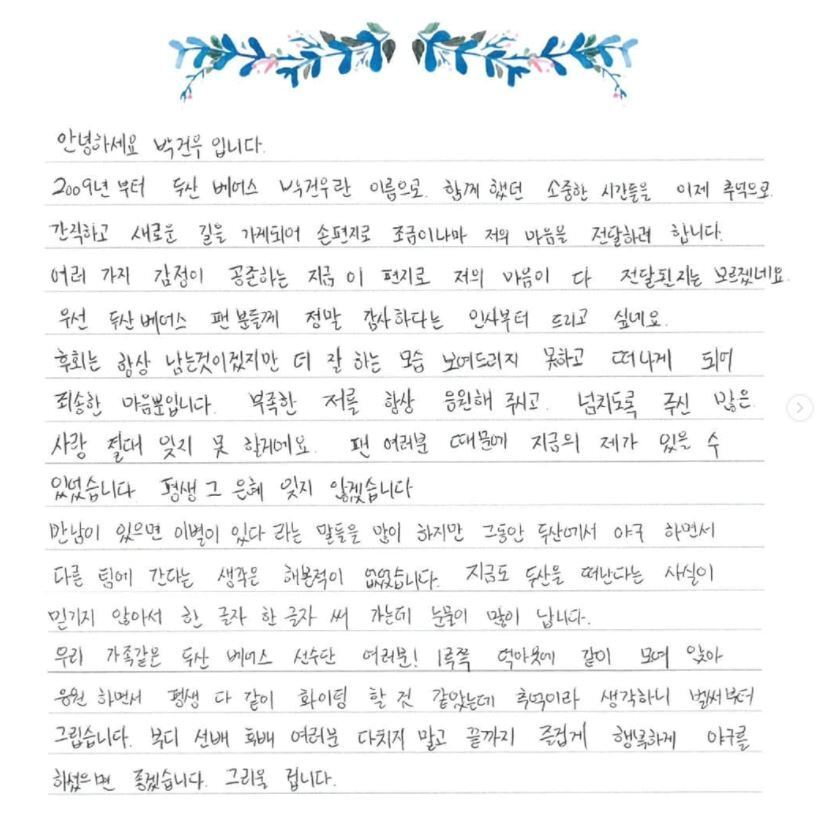 안녕하세요 박건우 입니다.
2009년 부터 두산 베어스 박건우란 이름으로. 함께 했던 소중한 시간들을 이제 추억으로
간직하고 새로운 길을 가게되어 손편지로 조금이나마 저의 마음을 전달하려 합니다.
여러 가지 감정이 공존하는 지금 이 편지로 저의 마음이 다 전달된지는 모르겠네요.
우선 두산베어스 팬분들께 정말 감사하다는 인사부터 드리고 싶네요.
후회는 항상 남는것이겠지만 더 잘 하는 모습 보여드리지 못하고 떠나게 되어
죄송한 마음뿐입니다. 부족한 저를 항상 응원해 주시고. 넘치도록 주신 많은
사랑 절대 잊지 못 할게에요. 팬 여러분 때문에 지금의 제가 있을 수
있었습니다. 평생 그 은혜 잊지 않겠습니다
만남이 있으면 이별이 있다 라는 말들을 많이 하지만 그동안 두산에서 야구 하면서
다른 팀에 간다는 생각은 해본적이 없었습니다. 지금도 두산을 떠난다는 사실이
믿기지 않아서 한 글자 한 글자 써 가는데 눈물이 많이 납니다.
우리 가족같은 두산 베어스 선수단 여러분! 1루쪽 덕아웃에 같이 모여 앉아
응원 하면서 평생 다 같이 화이팅 할 것 같았는데 추억이라 생각하니 벌써부터
그립습니다. 부디 선배 후배 여러분 다치지 말고 끝까지 즐겁게 행복하게 야구를
하셨으면 좋겠습니다. 그리울 겁니다.